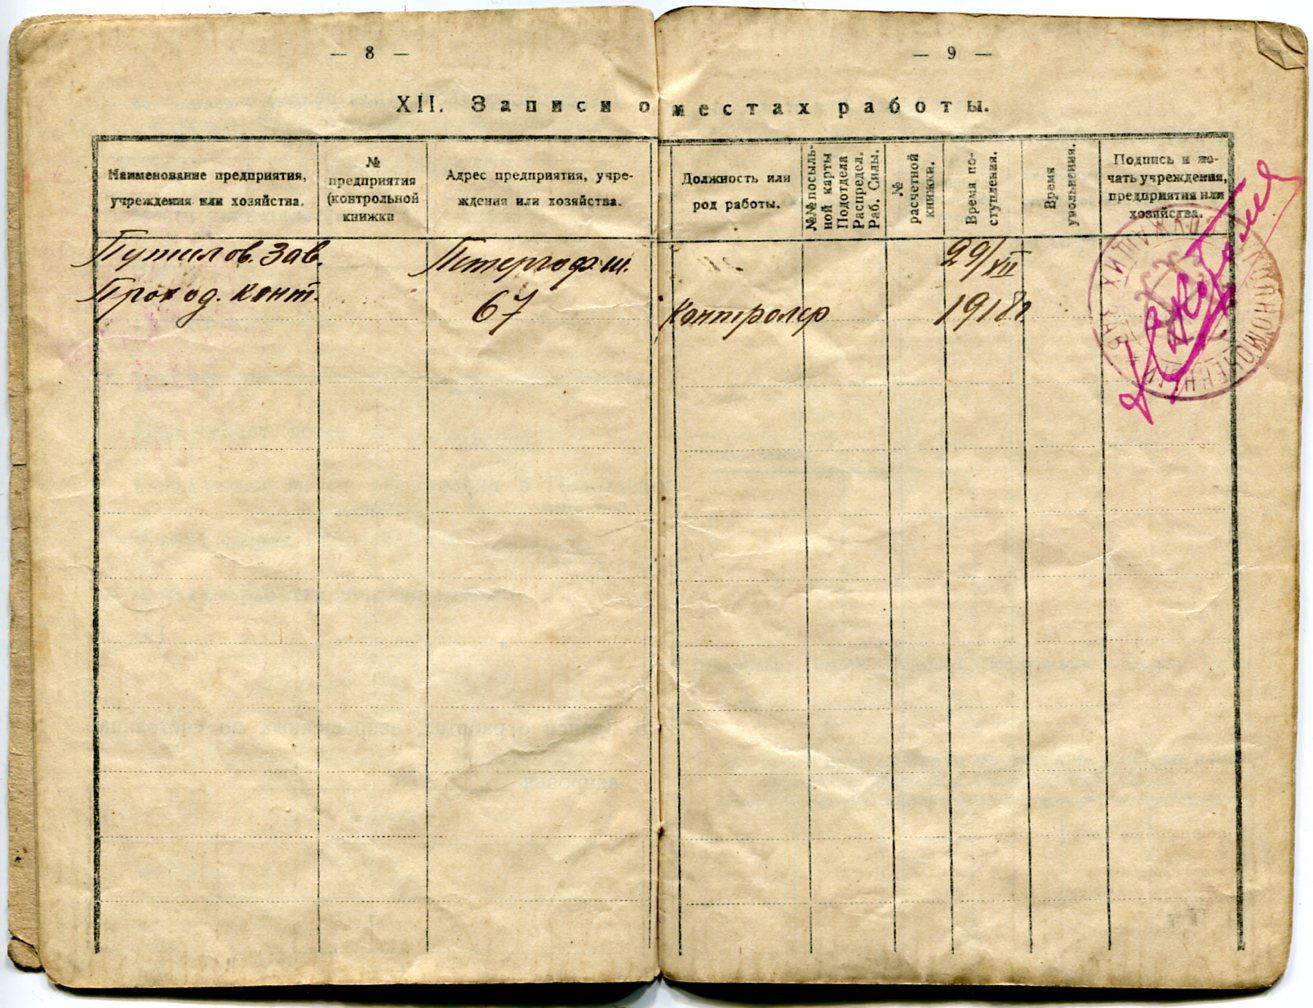 — 8 —
— 9 —
XII. Записи о местах работы.
Наименование предприятия,
учреждения или хозяйства.
№
предприятия
(контрольной
книжки
Адрес предприятия, учре-
ждения или хозяйства.
Должность или
род работы.
№№ посыль-
ной карты
Подотдела
Распредел.
Раб. Силы.
№
расчетной
книжки.
Время по-
ступления.
Время
увольнения.
Подпись и пе-
чать учреждения,
предприятия или
хозяйства.
Путилов. Зав.
Петергоф. ш.
29/XII
Проход. конт.
67
Контролер
1918г.